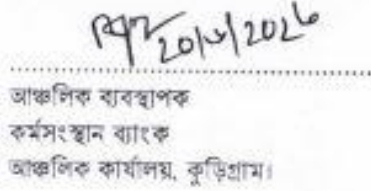 20/6/2026
আঞ্চলিক ব্যবস্থাপক
কর্মসংস্থান ব্যাংক
আঞ্চলিক কার্যালয়, কুড়িগ্রাম।